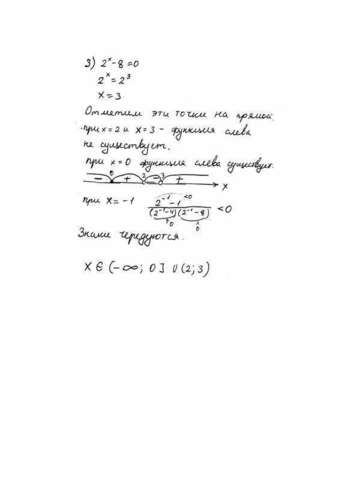 3) 2^x - 8 = 0
2^x = 2^3
x = 3
Отметим эти точки на прямой.
при x = 2 и x = 3 - функция слева
не существует.
при x = 0 функция слева существует.
0 2 3
- + - + x
при x = -1 (2^-1 - 1)/((2^-1 - 4)(2^-1 - 8)) < 0
<0
0 0
Знаки чередуются.
X ∈ (-∞; 0] ∪ (2; 3)